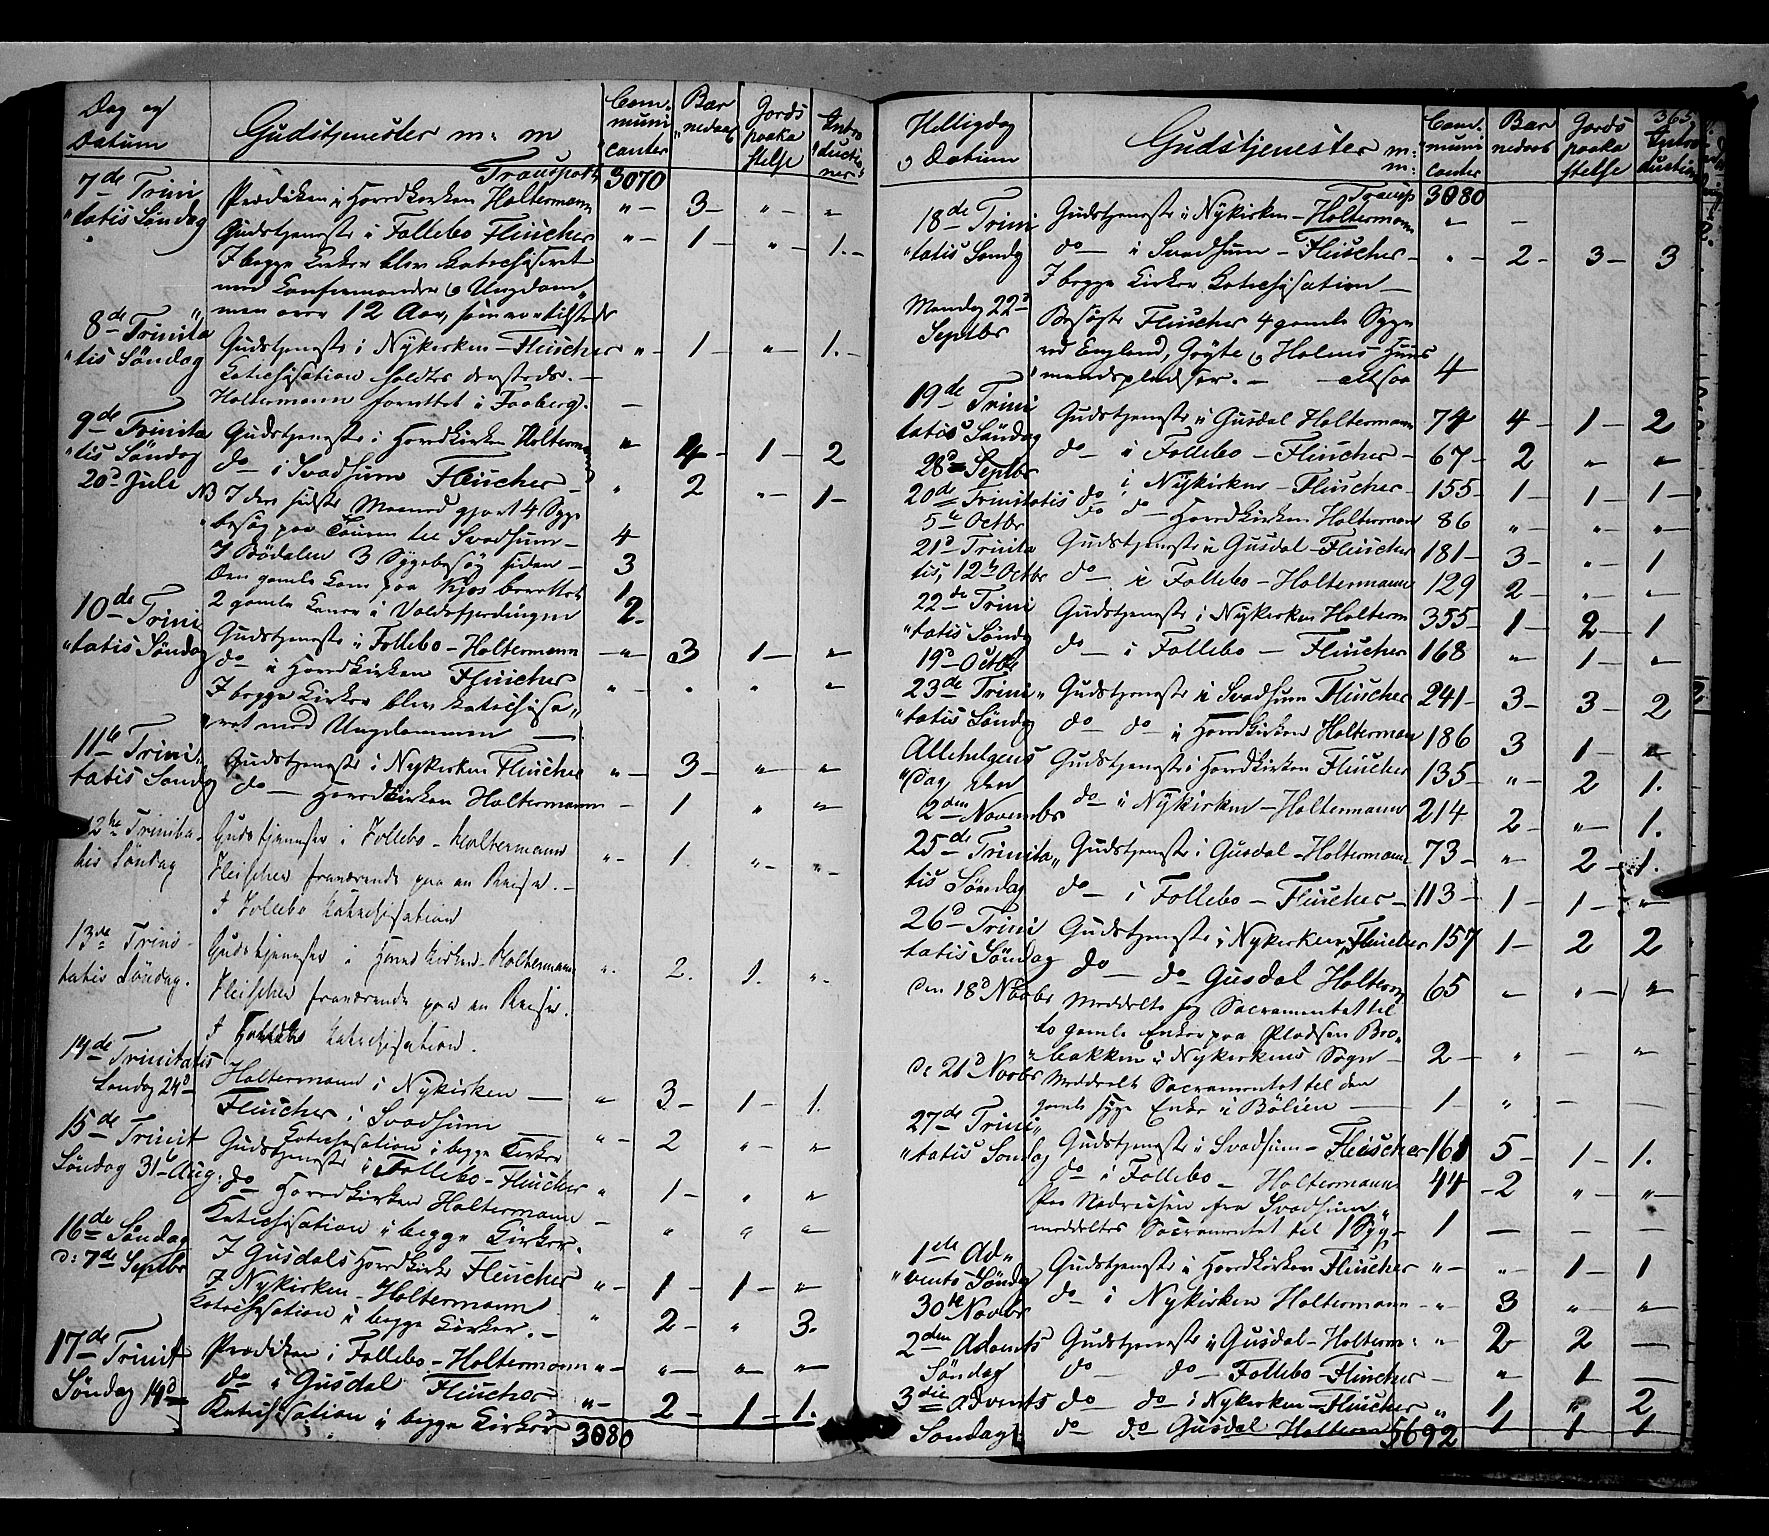 Dag og Datum
Gudstjenester m: m
Communicanter
Barnedaab
Jordspaakastelse
Introductioner
Transport 3070
7de Trini
Prædiken i Hovedkirken Holtermann " — 3 — " — "
tatis Søndag
Gudstjeneste i Follebo Fleischer " — 1 — " — 1. —
I begge Kirker blev Katechiseret
med Confirmander og Ungdom
men over 12 Aar, som var tilstede
8de Trinita
tis Søndag
Gudstjeneste i Nykirken — Fleischer " — 1 — " — 1. —
Katechisation holdtes dersteds. —
Holtermann forrettet i Faaberg. —
9de Trinita
Gudstjeneste i Hovedkirken Holtermann " 4 — 1 — 2
tis Søndag
do — i Svadsum Fleischer — " 2 " — 1 —
20d Juli
NB I den sidste Maaned gjort 4 Syge
besøg paa Touren til Svadsum — 4
I Bødalen 3 Sygebesøg siden — 3
Den gamle Kone paa Kjøs berettet 1
2 gamle Koner i Voldsfjerdingen 2 —
10de Trini
tatis Søndag
Gudstjeneste i Follebo — Holtermann — " — 3 1 — "
do — i Hovedkirken Fleischer " — " " "
I begge Kirker blev Katechise
ret med Ungdommen —
11te Trini
Gudstjeneste i Nykirken Fleischer " — 3 — " — "
tatis Søndag
do — Hovedkirken Holtermann — 1 " "
12te Trinita-
tis Søndag
Gudstjeneste i Follebo — Holtermann " — 1. " — " —
Fleischer fraværende paa en Reise. —
I Follebo Katechisation
13de Trini-
tatis Søndag.
Gudstjeneste i Hoved Kirken — Holtermann " 2. 1. "
Fleischer fraværende paa en Reise.
I Katechisation.
14de Trinitatis
Søndag 24d
Holtermann i Nykirken — " 3 — 1 — 1.
Fleischer i Svadsum — " — 2 " — "
Katechisation i begge Kirker
15de Trinit
Søndag 31te Aug:
Gudstjeneste i Follebo — Fleischer " 1 — " "
do Hovedkirken Holtermann — " " "
Katechisation i begge Kirker.
16de Søndag
d: 7de Septbr
I Gusdals Hovedkirke Fleischer " — 1 — 1 — "
I Nykirken — Holtermann " 2 — " 3.
Katechisation i begge Kirker. —
17de Trinit
Søndag 14d
Prædiken i Follebo — Holtermann " — " — " — "
do — i Gusdal Fleischer " — 2 — 1 — 1.
Katechisation i begge Kirker
3080
365.
Helligdag og Datum
Gudstjenester m: m:
Communicanter
Barnedaab
Jordspaakastelse
Introduction
Transp 3080
18de Trini
Gudstjeneste i Nykirken — Holtermann " — —
tatis Søndg
do — i Svadsum — Fleischer — " — 2 — 3 — 3
I begge Kirker Katechisation —
Mandag 22d
Septbr
Besøgte Fleischer 4 gamle Syge
ved England, Grøyte og Holms Huus
mandspladser. — altsaa 4
19de Trini
tatis Søndag
Gudstjeneste i Gusdal Holtermann 74 4 — 1 — 2
28d Septbr
do — i Follebo — Fleischer — 67 — 2 " — "
20de Trinitatis do i Nykirken — Fleischer — 155 — 1 — 1 — 1 —
5te Octbr do do — Hovedkirken Holtermann 86 " — " — "
21d Trinita
Gudstjeneste i Gusdal — Fleischer 181 — 3 — " — 1
tis, 12te Octbr do — i Follebo — Holtermann 129 2 — " — "
22de Trini
Gudstjeneste i Nykirken Holterm 355 — 1 — 2 — 1
tatis Søndg
do — i Follebo — Fleischer 168 " 1 — "
19d Octbr
23de Trini
Gudstjeneste i Svadsum Fleischer 241 — 3 — 3 — 2
tatis Søndag
do do — i Hovedkirken Holterman 186 3 1 — "
Allehelgens
Dag den
Gudstjeneste i Hovedkirken Fleischer 135 — " — 2 1.
2den Novembr
do — i Nykirken — Holtermann 214 2 — " — 1.
25de Trinita
tis Søndag
Gudstjeneste i Gusdal — Holtermann 73 — " 2 — 1.
do — i Follebo — Fleischer — 113 — 1 1 — "
26d Trini
tatis Søndag
Gudstjeneste i Nykirken Fleischer 157 1 — 2 2
do — do Gusdal Holterm 65 — " — "
Den 18d Novbr
Meddelte jeg Sacramentet til
to gamle Enker paa Pladsen Bro
bakken i Nykirkens Sogn — 2 — " — "
D: 21d Novbr
Meddeelt Sacramentet til den
gamle syge Enke i Bølien — 1 — " — —
27de Trini
tatis Søndag
Gudstjeneste i Svadsum — Fleischer 161 5 — 1 — 1.
do — i Follebo — Holtermann 44 — 2 " — "
Paa Nedreisen fra Svadsum
meddeltes Sacramentet til 1 Syg — 1 — — —
1ste Ad
vents Søndag
Gudstjeneste i Hovedkirken Fleischer " — " — 1 — 1
30te Novbr
do — i Nykirken Holtermann — " 3 " — "
2den Advents
Søndag
Gudstjeneste i Gusdal — Holterm: " 2 2 —
do do — Follebo Fleischer — " 1 —
3die Advents
Søndag
do do — i Nykirken — Fleischer " 1 " 2
do do Gusdal Holterm 1 1 1
5692